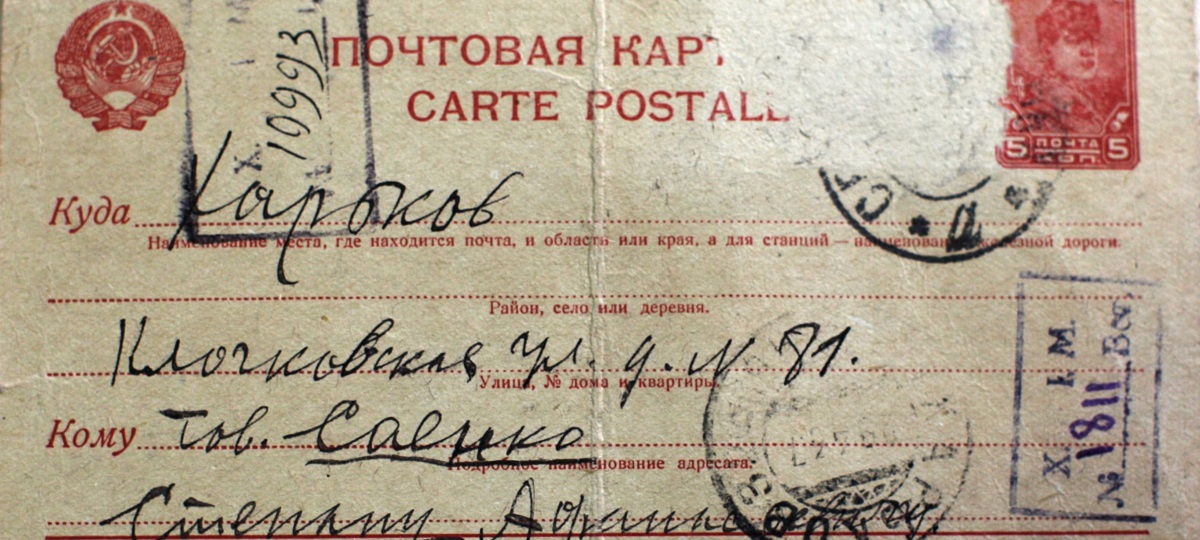 ПОЧТОВАЯ КАРТ
CARTE POSTALE
5 ПОЧТА 5
КОП
10993
Х.
Куда Харьков
Наименование места, где находится почта, и область или края, а для станций — наименование железной дороги.
Район, село или деревня.
Клочковская ул. д. N 81.
Улица, № дома и квартиры.
Х. І. М.
№ 1811 Вст
Кому Тов. Саенко
Подробное наименование адресата.
Степану Афанасьевичу.